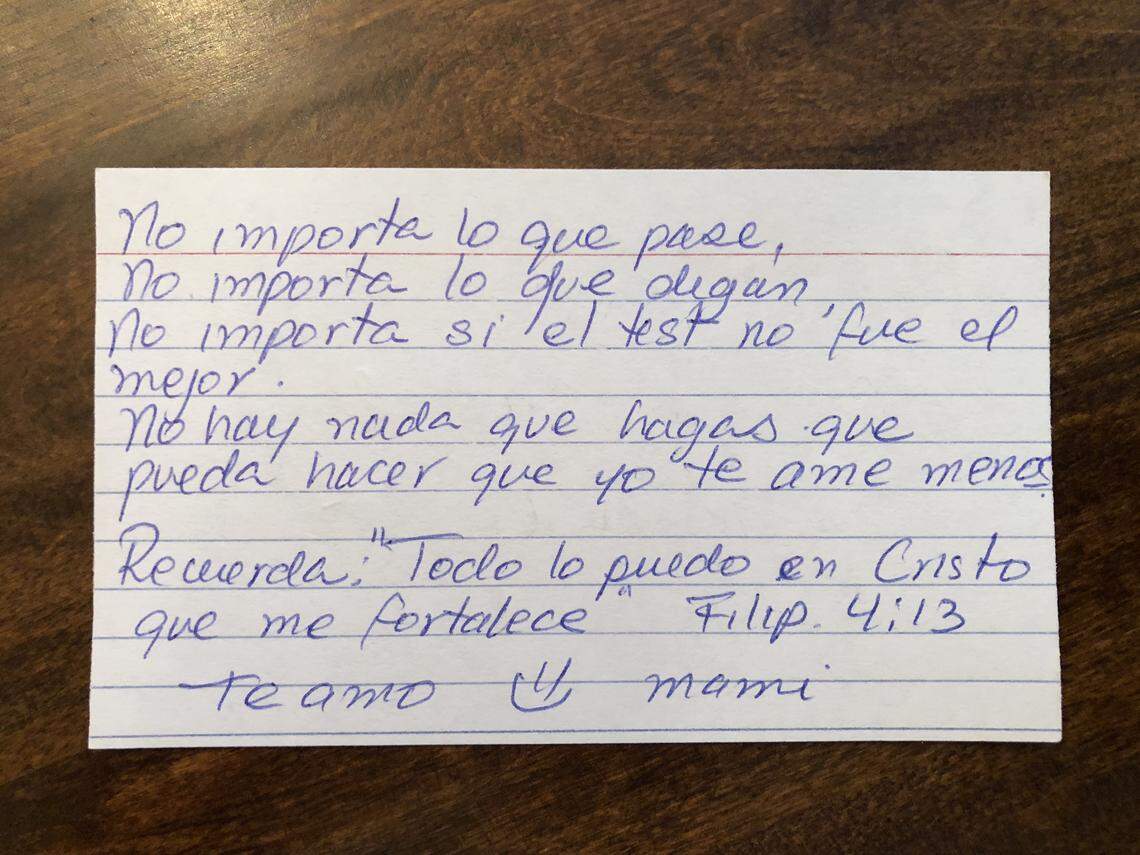 No importa lo que pase,
No importa lo que digan
No importa si el test no fue el
mejor.
No hay nada que hagas que
pueda hacer que yo te ame menos.
Recuerda: "Todo lo puedo en Cristo
que me fortalece" Filip. 4:13
Te amo mami